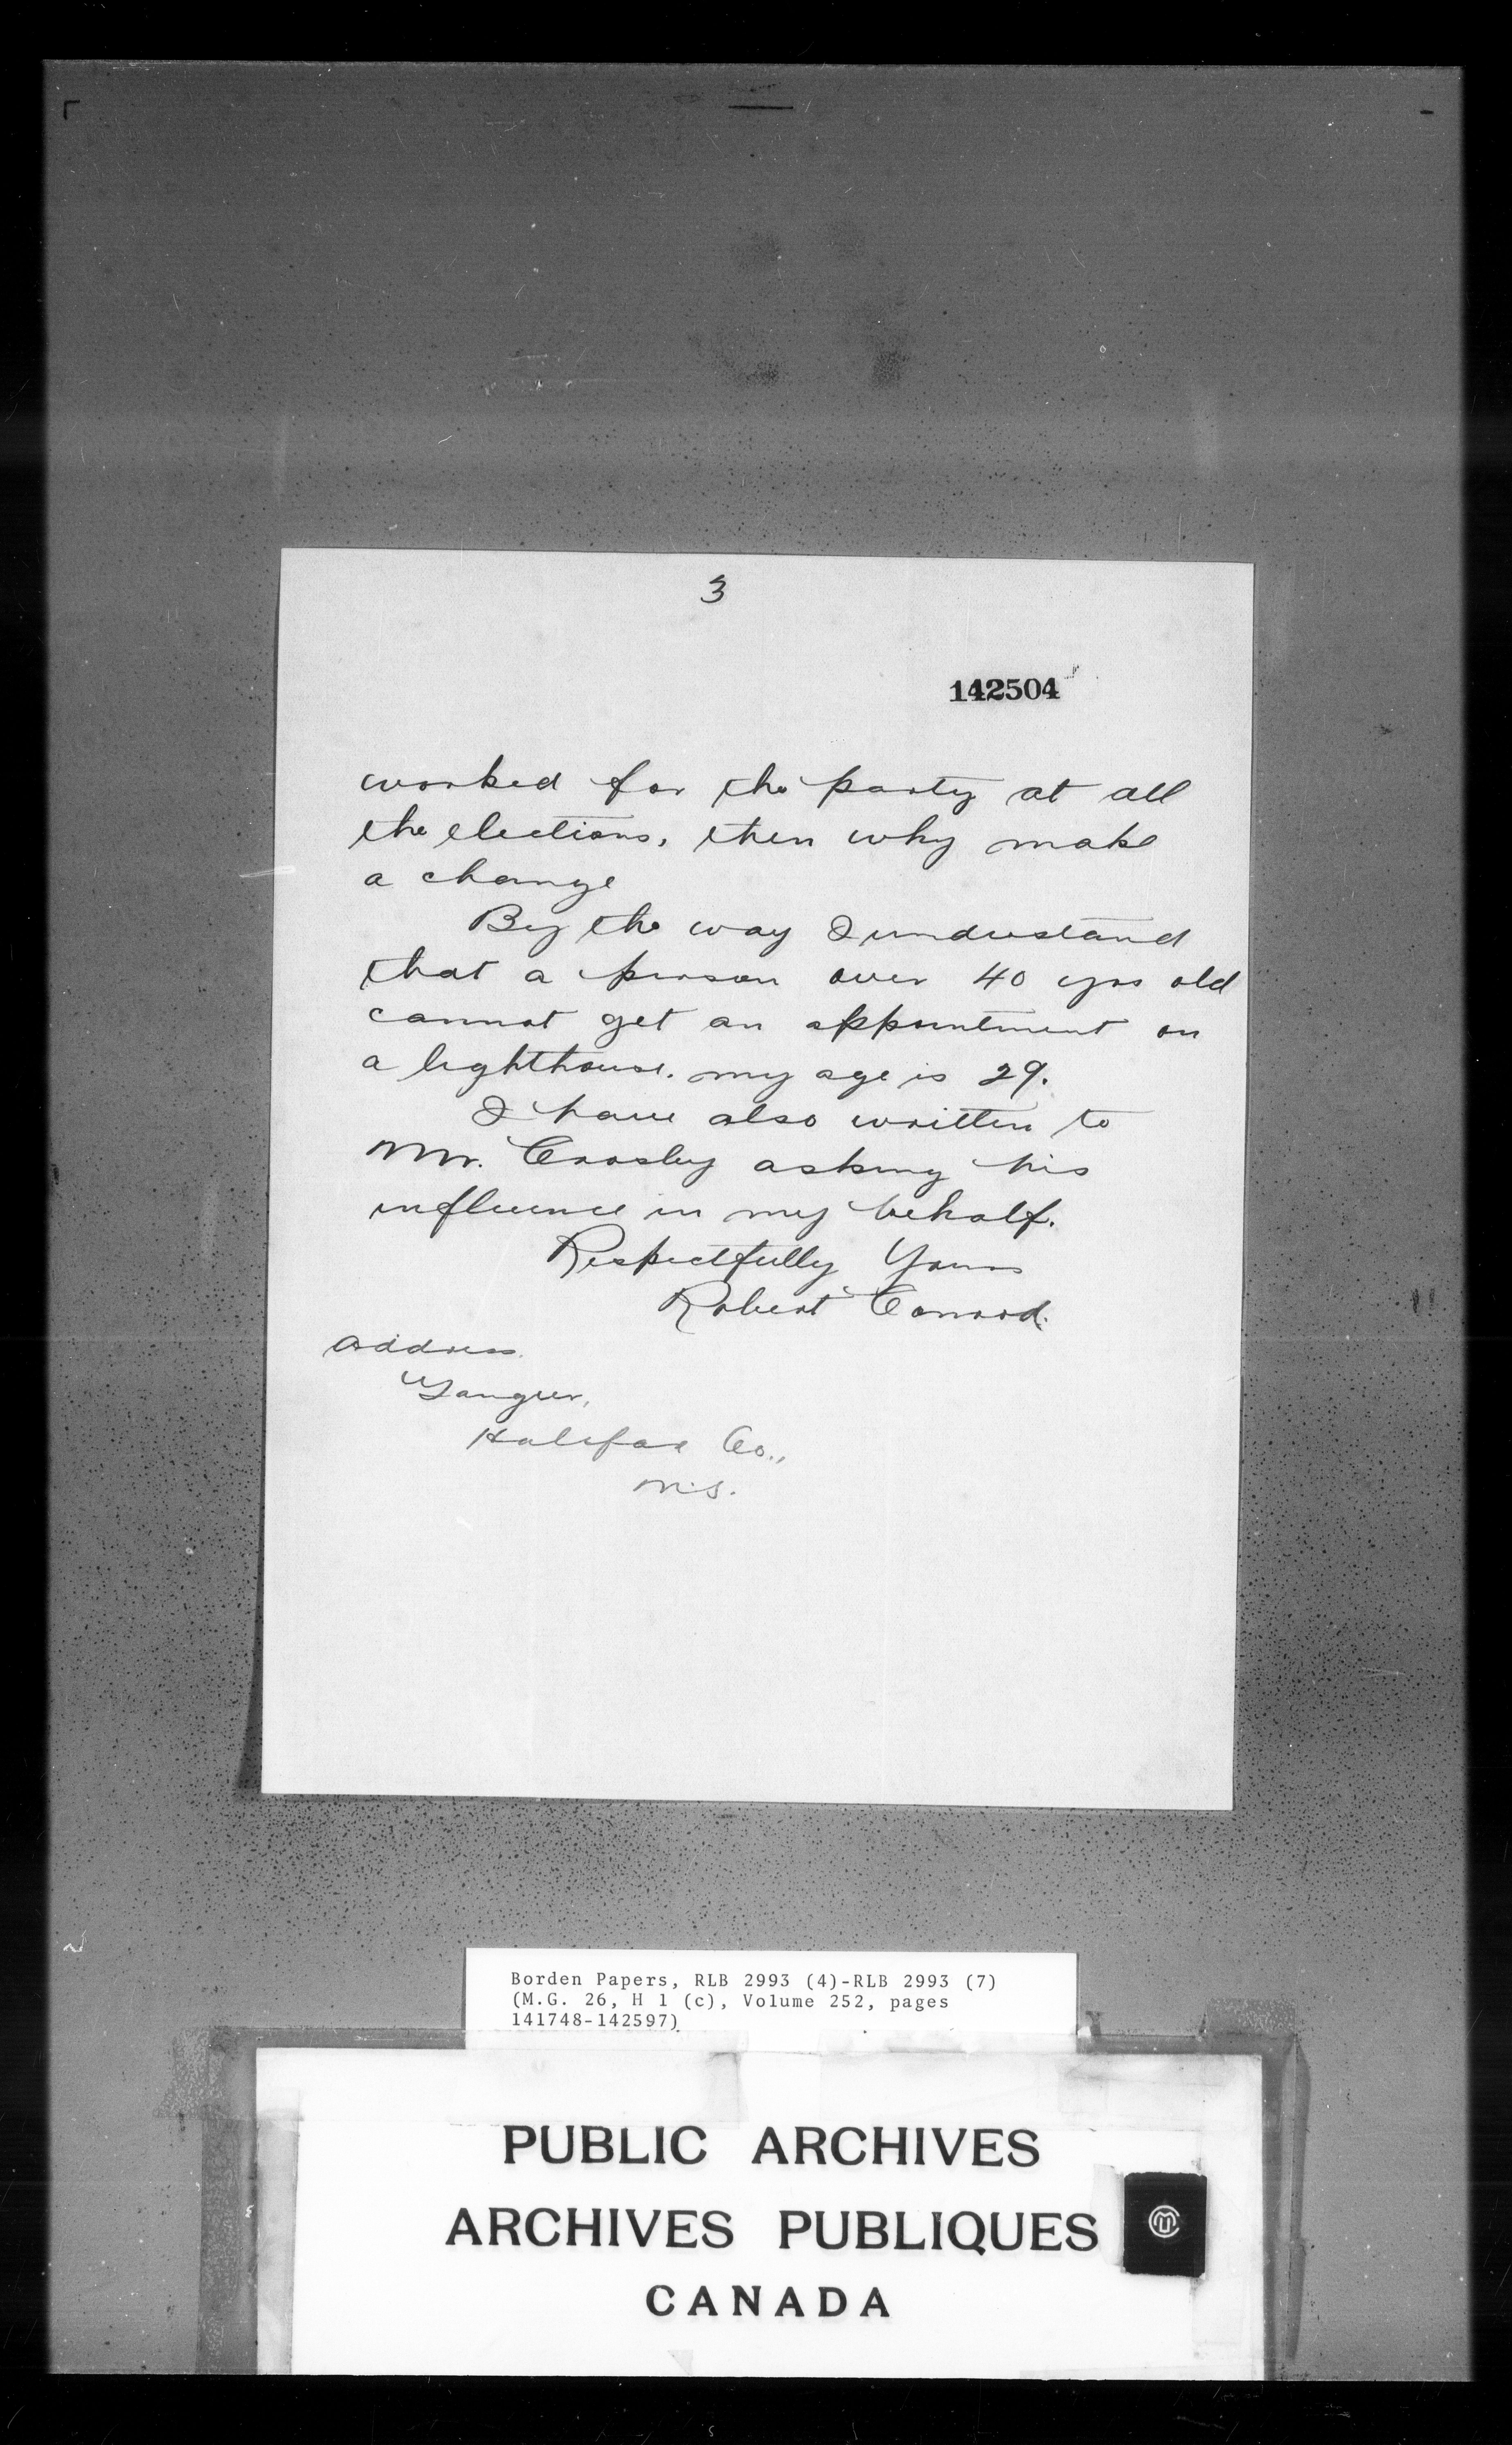 3
142504
worked for the party at all
the elections, then why make
a change
By the way I understand
that a person over 40 yrs old
cannot get an appointment on
a lighthouse. my age is 29.
I have also written to
Mr. Crosby asking his
influence in my behalf.
Respectfully Yours
Robert Conrod.
Address.
Tangier,
Halifax Co.,
N.S.
Borden Papers, RLB 2993 (4)-RLB 2993 (7)
(M.G. 26, H 1 (c), Volume 252, pages
141748-142597)
PUBLIC ARCHIVES
ARCHIVES PUBLIQUES
CANADA